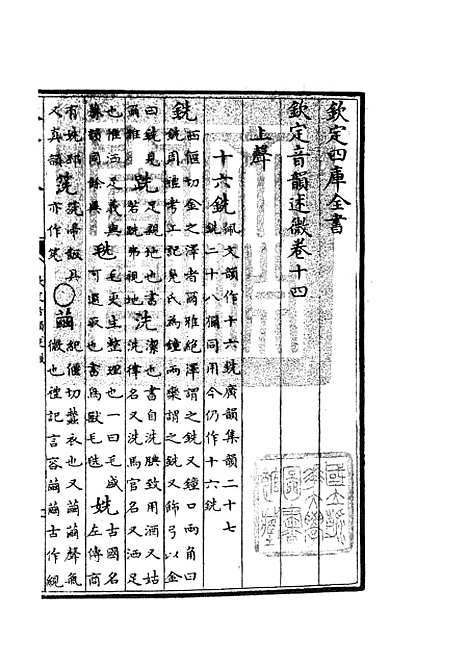 欽定四庫全書
欽定音韻述微卷十四
上聲
十六銑 佩文韻作十六銑廣韻集韻二十七
銑二十八獮同用今仍作十六銑
銑 西㑶切金之澤者爾雅絶澤謂之銑又鐘口兩角曰
銑周禮考工記鳧氏為鐘兩欒謂之銑又飾弓以金
曰銑見 跣 足親地也書 洗 潔也書自洗腆致用酒又姑
爾雅 若跣弗視地 洗律名又洗馬官名又洒足
也 洒足義與 毨 毛更生整理也一曰毛盛 姺 古國名
可選取也書鳥獸毛毨 左傳商
有姺邳 筅 筅帚飯具 ○ 繭 切蠶衣也又繭繭聲氣
又真韻 亦作 微也禮記言容繭繭古作絸